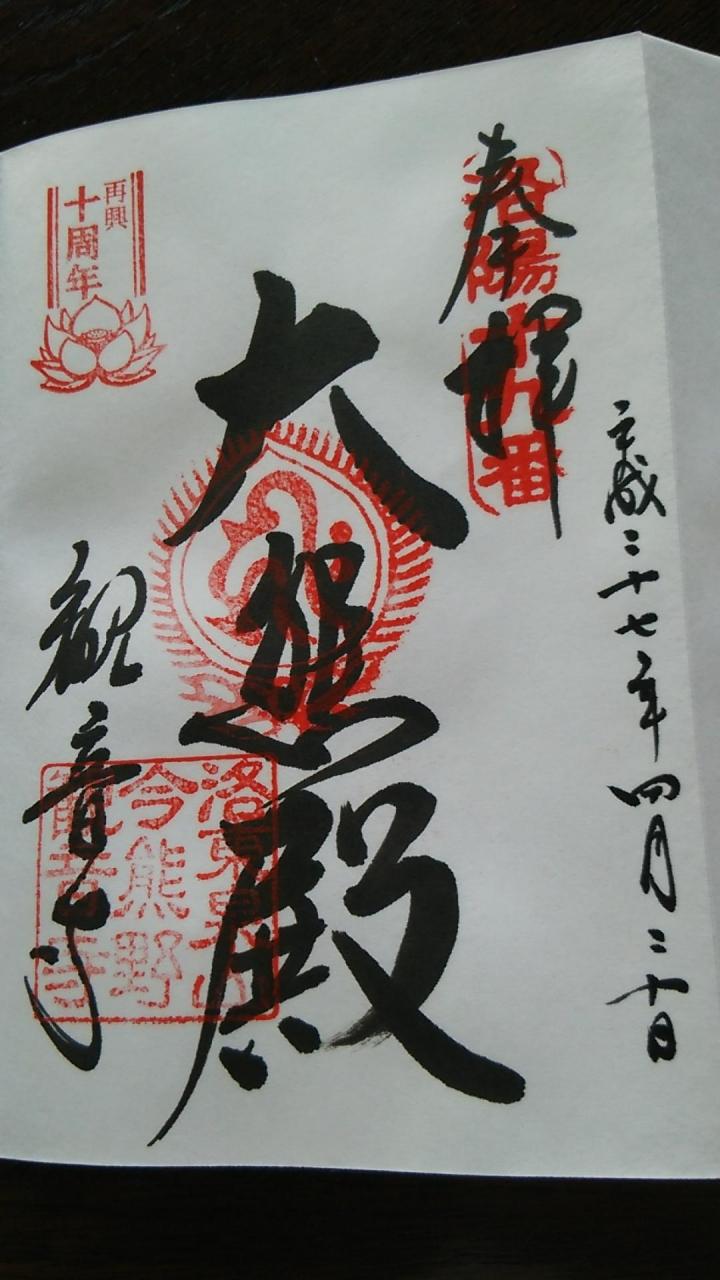 奉拝
洛陽十九番
平成二十七年四月二十日
大悲殿
再興
十周年
観音寺
洛東泉山
今熊野
観音寺